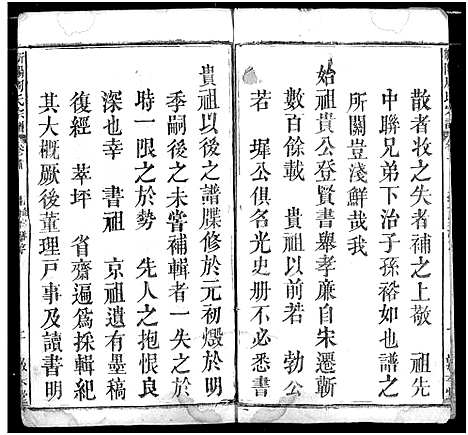 散者收之失者補之上敬 祖先
中聯兄弟下治子孫裕如也譜之
所關豈淺鮮哉我
始祖貴公登賢書舉孝廉自宋遷蘄
數百餘載 若 勃公
若 墀公俱名光史册不必悉書
貴祖以後之譜牒修於元初燬於
季嗣後之未嘗補輯者一失之於
時一限之於勢 先人之抱恨良
深也幸 書祖 京祖遺有墨稿
復經 萃坪 省齋遍爲採輯紀
其大概厥後董理戶事及讀書明
陽周氏宗譜